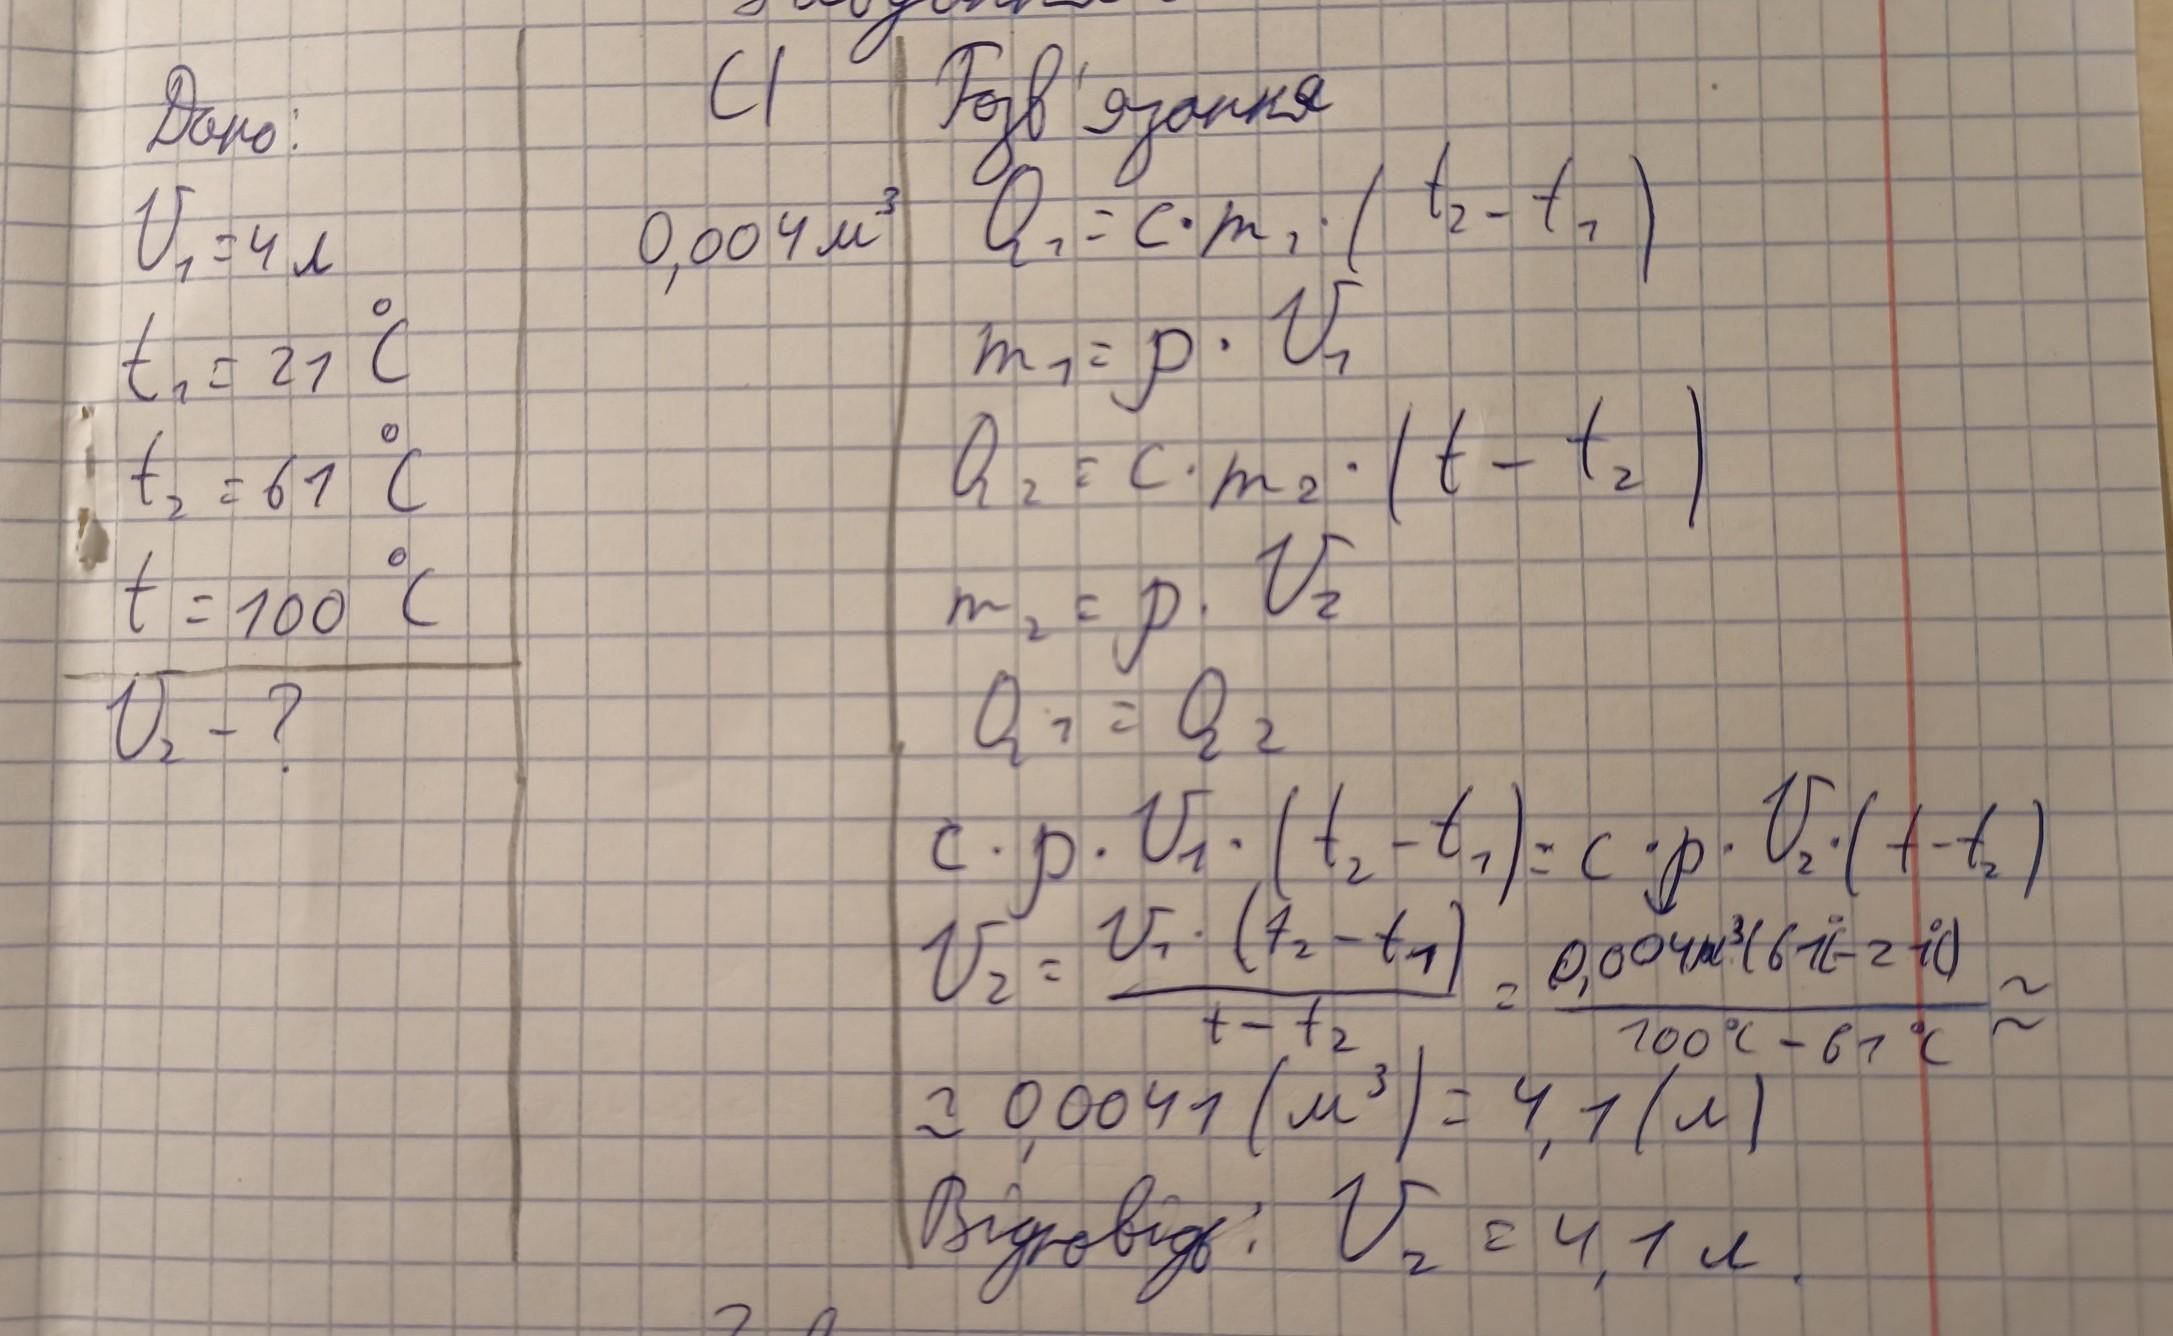 Дано:
V₁ = 4 л
t₁ = 21 °C
t₂ = 61 °C
t = 100 °C
V₂ - ?
СІ
0,004 м³
Розв'язання
Q₁ = c · m₁ · ( t₂ - t₁ )
m₁ = ρ · V₁
Q₂ = c · m₂ · ( t - t₂ )
m₂ = ρ · V₂
Q₁ = Q₂
c · ρ · V₁ · ( t₂ - t₁ ) = c · ρ · V₂ · ( t - t₂ )
V₂ = V₁ · (t₂ - t₁) / t - t₂ = 0,004 м³ (61°C - 21°C) / 100°C - 61°C ≈
≈ 0,0041 (м³) = 4,1 (л)
Відповідь: V₂ = 4,1 л.